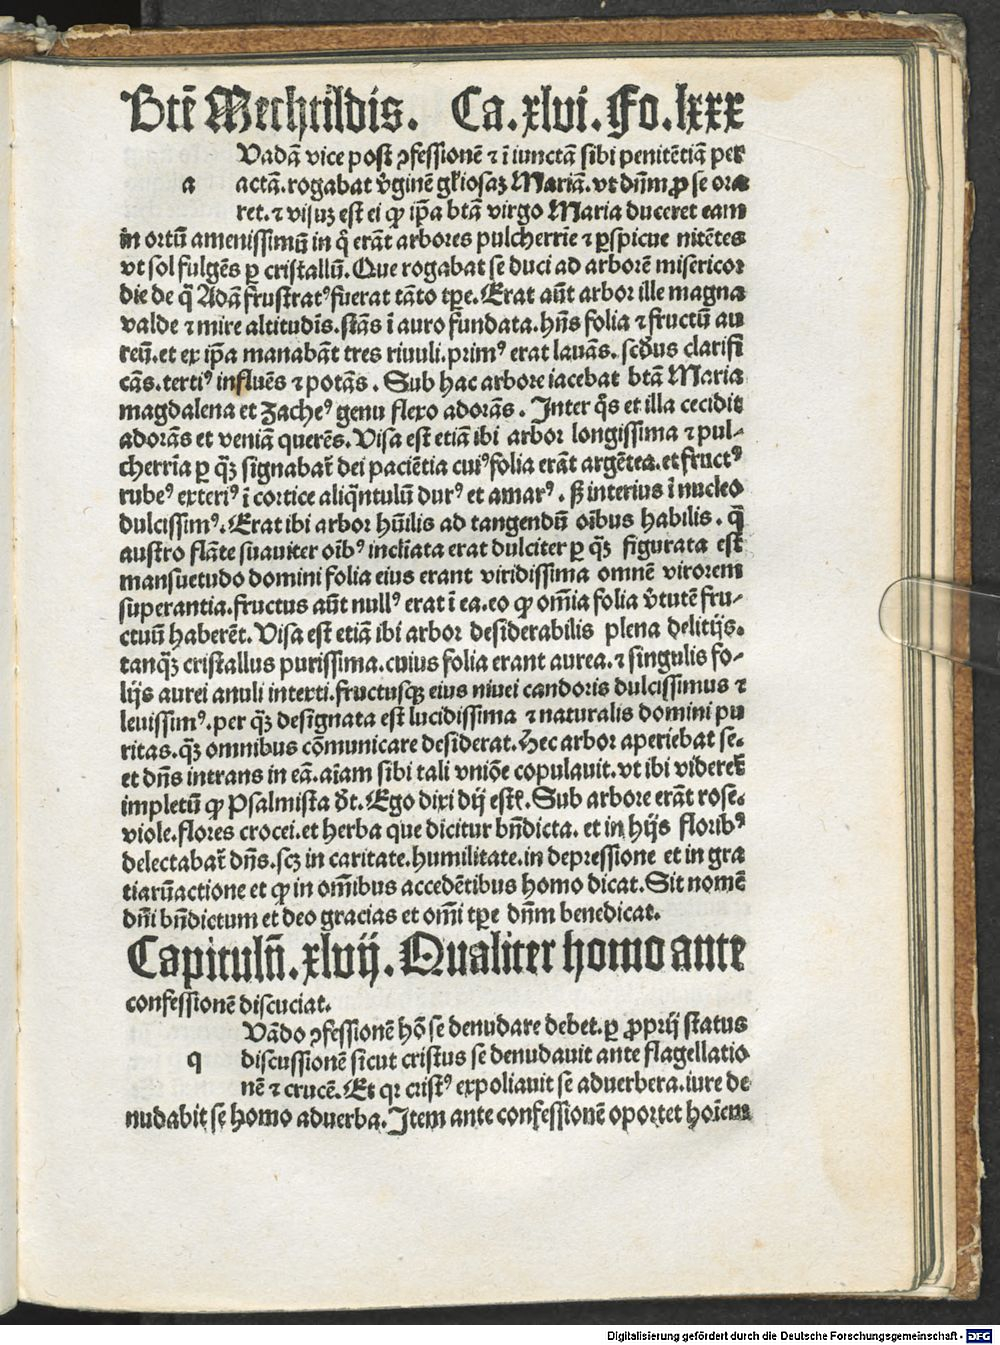 Btē Mechtildis. Ca. xlvi. Fo. lxxx
Uadā vice post ꝯfessionē ⁊ ī iunctā sibi penitētiā per
a actā. rogabat v̄ginē gl̄iosaꝫ Mariā. vt dn̄m ꝓ se ora
ret. ⁊ visuꝫ est ei ꝙ ip̄a btā virgo Maria duceret eam
in ortū amenissimū in q̄ erāt arbores pulcherrīe ⁊ ꝑspicue nitētes
vt sol fulgēs ꝑ cristallū. Que rogabat se duci ad arborē misericor
die de q̄ Adā frustratꝰ fuerat tāto tꝑe. Erat aūt arbor ille magna
valde ⁊ mire altitudīs. stās ī auro fundata. hn̄s folia ⁊ fructū au
reū. et ex ip̄a manabāt tres riuuli. primꝰ erat lauās. scd̄us clarifi
cās. tertiꝰ influēs ⁊ potās. Sub hac arbore iacebat btā Maria
magdalena et Zacheꝰ genu flexo adorās. Inter q̄s et illa cecidit
adorās et veniā querēs. Visa est etiā ibi arbor longissima ⁊ pul-
cherrīa ꝑ q̄ꝫ signabat̄ dei paciētia cuiꝰ folia erāt argētea. et fructꝰ
rubeꝰ exteriꝰ ī cortice aliq̄ntulū durꝰ et amarꝰ. sꝫ interius ī nucleo
dulcissimꝰ. Erat ibi arbor hūilis ad tangendū oībus habilis. q̄
austro flāte suauiter oībꝰ inclīata erat dulciter ꝑ q̄ꝫ figurata est
mansuetudo domini folia eius erant viridissima omnē virorem
superantia. fructus aūt nullꝰ erat ī ea. eo ꝙ om̄ia folia v̄tutē fru-
ctuū haberēt. Visa est etiā ibi arbor desiderabilis plena delitijs.
tanq̄ꝫ cristallus purissima. cuius folia erant aurea. ⁊ singulis fo-
lijs aurei anuli intexti. fructusqꝫ eius niuei candoris dulcissimus ⁊
leuissimꝰ. per q̄ꝫ designata est lucidissima ⁊ naturalis domini pu
ritas. q̄ꝫ omnibus cōmunicare desiderat. Hec arbor aperiebat se.
et dn̄s intrans in eā. aīam sibi tali vniōe copulauit. vt ibi videret̄
impletū ꝙ Psalmista d̄t. Ego dixi dij estꝭ. Sub arbore erāt rose.
viole. flores crocei. et herba que dicitur bn̄dicta. et in hijs floribꝰ
delectabat̄ dn̄s. scꝫ in caritate. humilitate. in depressione et in gra
tiarūactione et ꝙ in om̄ibus accedētibus homo dicat. Sit nomē
dn̄i bn̄dictum et deo gracias et om̄i tꝑe dn̄m benedicat.
Capitulū. xlvij. Qualiter homo ante
confessionē discuciat.
Uādo ꝯfessionē hō se denudare debet. ꝑ ꝓprij status
q discussionē sicut cristus se denudauit ante flagellatio
nē ⁊ crucē. Et qꝛ cristꝰ expoliauit se aduerbera. iure de
nudabit se homo aduerba. Item ante confessionē oportet hoīem
Digitalisierung gefördert durch die Deutsche Forschungsgemeinschaft - DFG